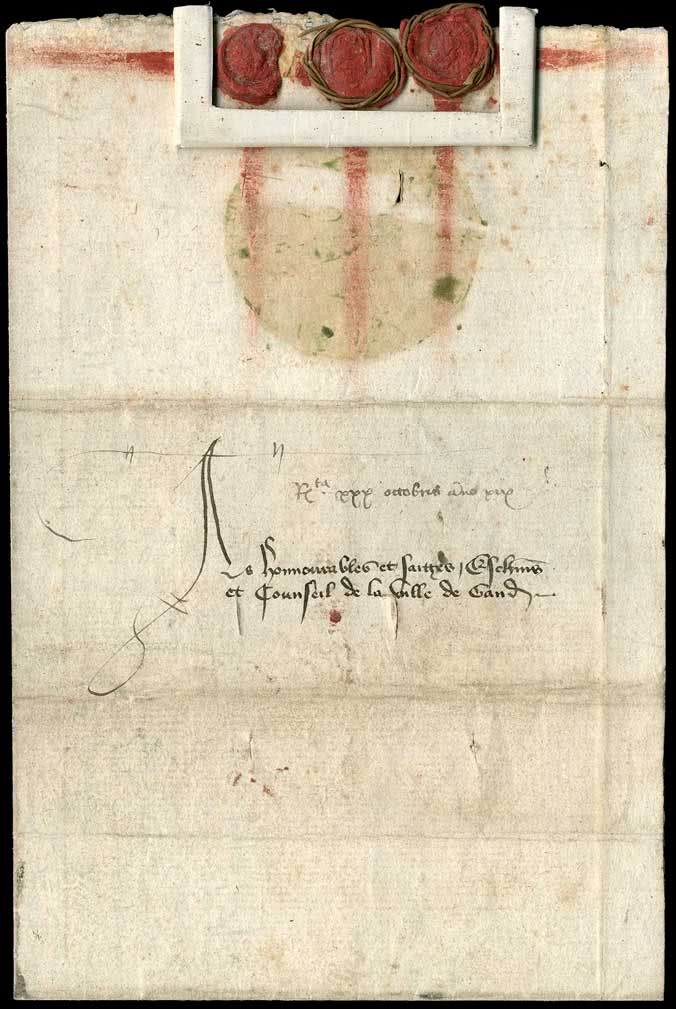 R^ta xxx octobris an̄o xix
As Honnourables et saiges Eschīns
et Counseil de la ville de Gand